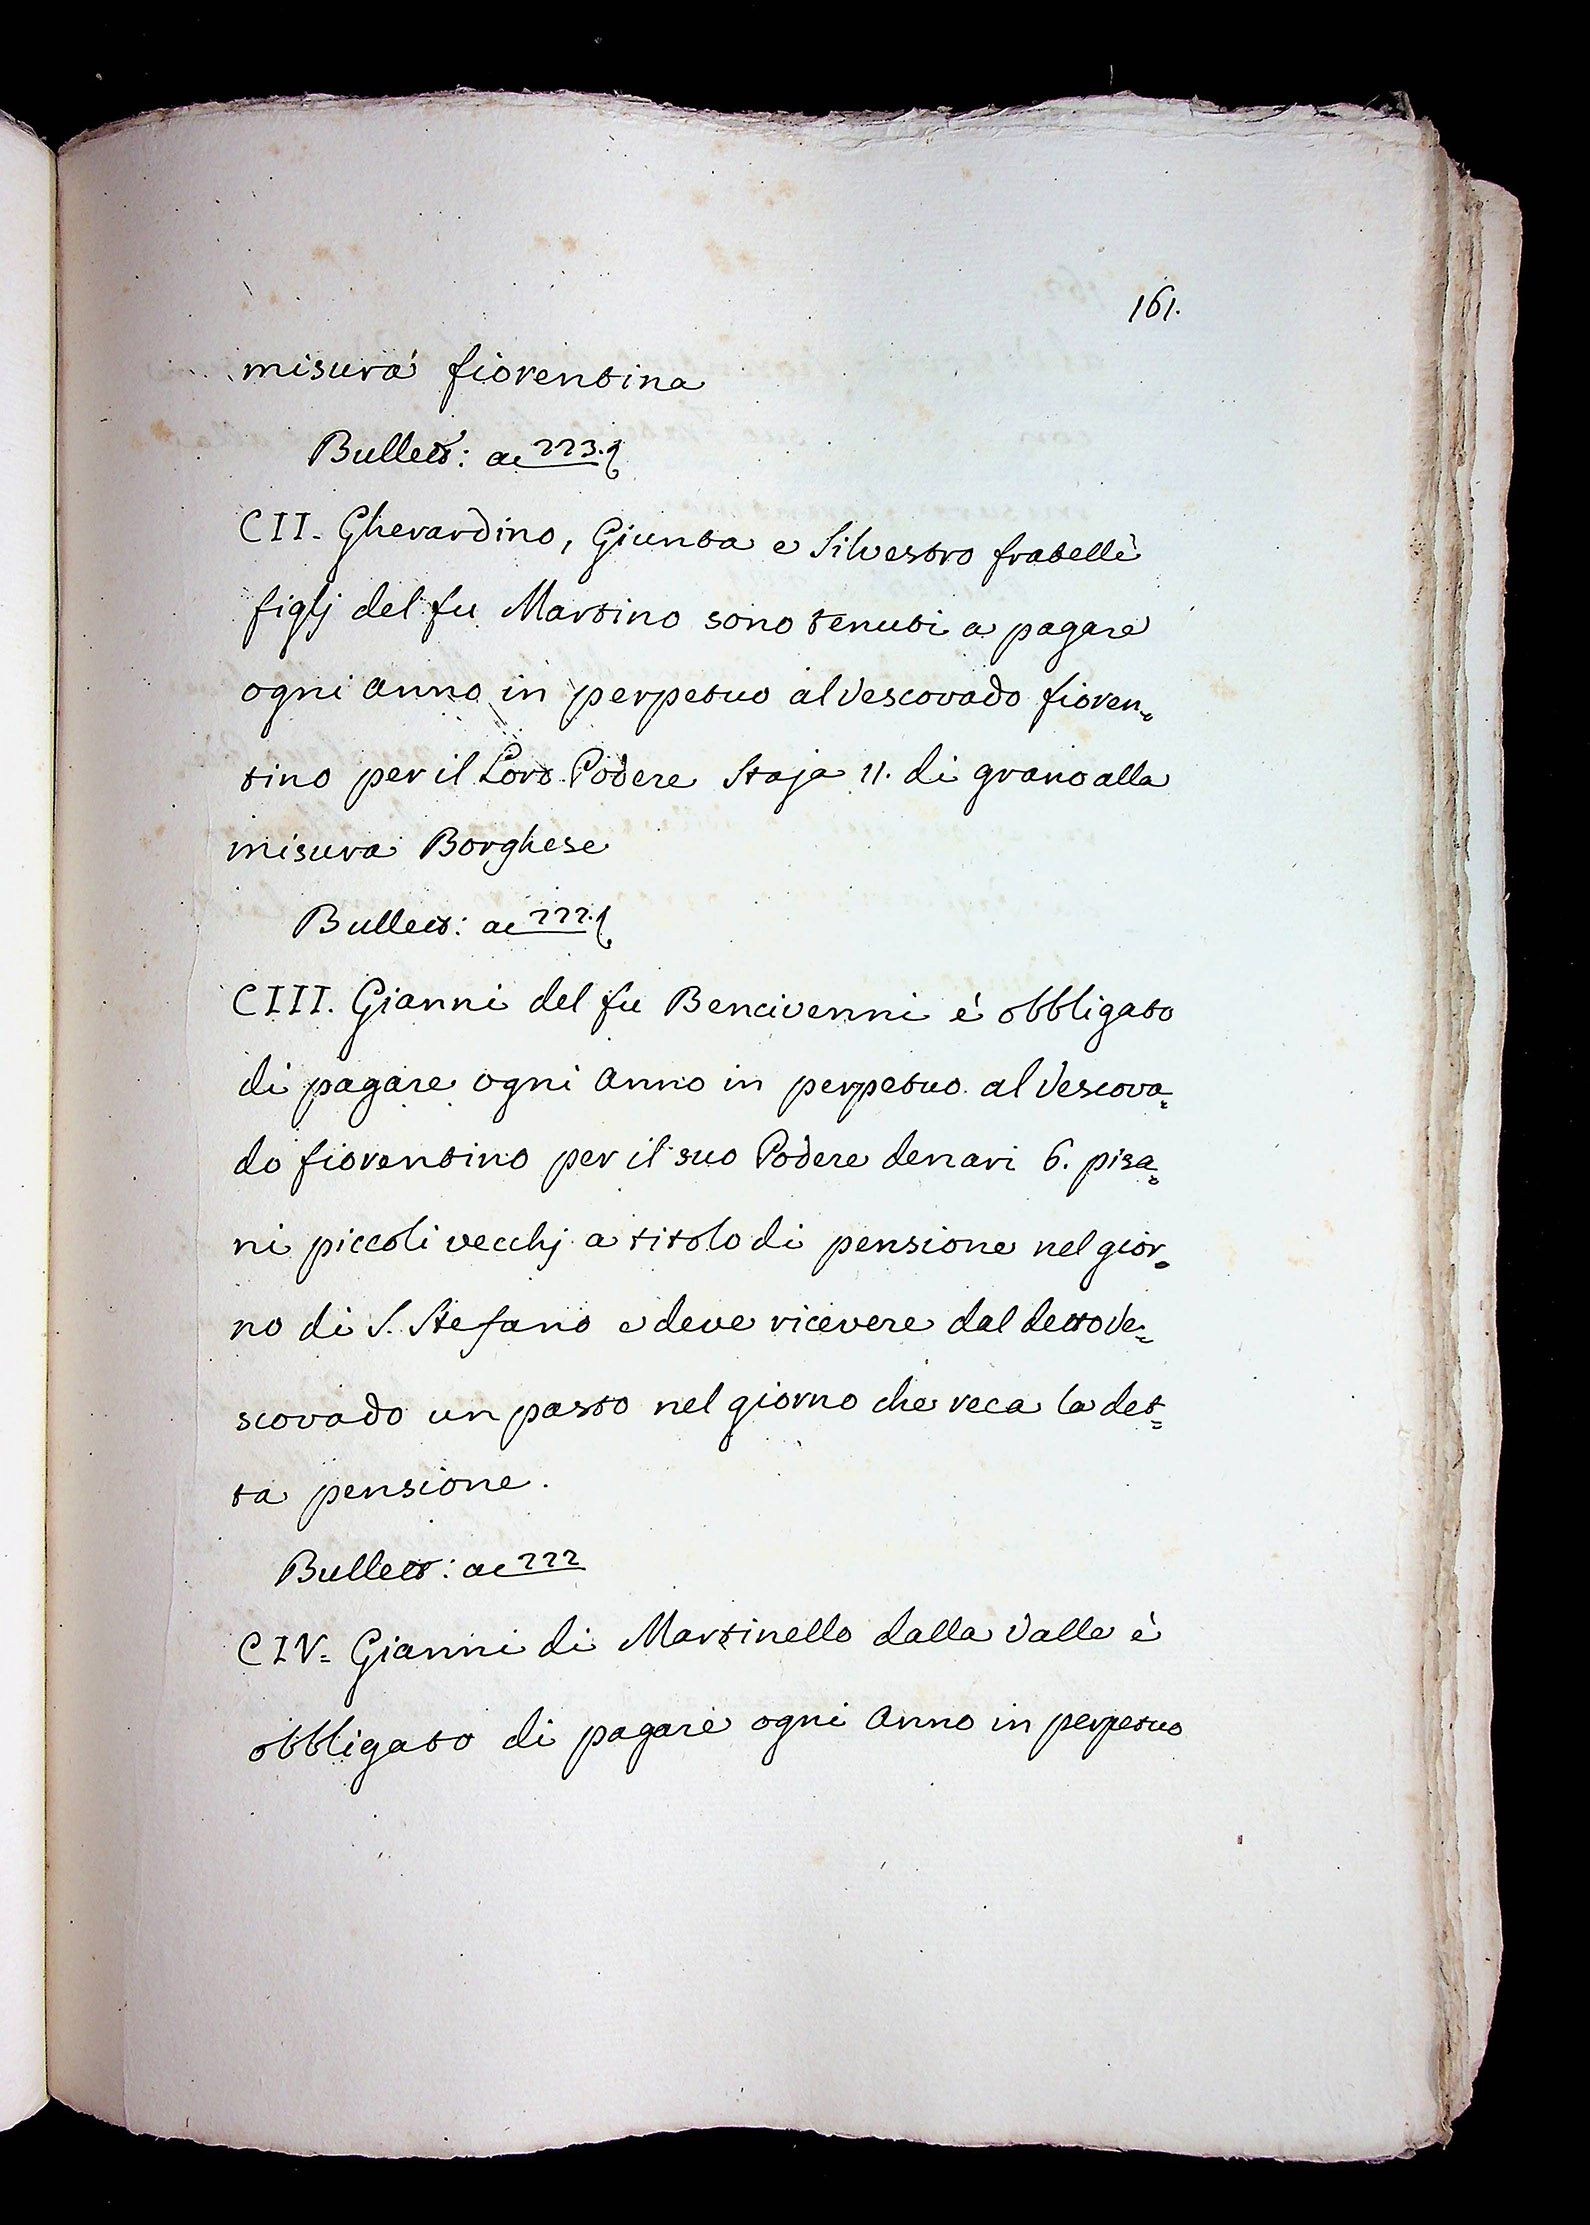 161.
misura fiorentina
Bullett: ac 223.
CII. Gherardino, Giunta e Silvestro fratelli
figlj del fu Martino sono tenuti a pagare
ogni anno in perpetuo al Vescovado fioren=
tino per il Loro Podere Staja 11. di grano alla
misura Borghese
Bullett: ac 222.
CIII. Gianni del fu Bencivenni é obbligato
di pagare ogni anno in perpetuo al Vescova=
do fiorentino per il suo Podere denari 6. pisa=
ni piccoli vecchj a titolo di pensione nel gior=
no di S. Stefano e deve ricevere dal detto Ve=
scovado un pasto nel giorno che reca la det=
ta pensione.
Bullett: ac 222
CIV= Gianni di Martinello dalla Valle è
obbligato di pagare ogni anno in perpetuo